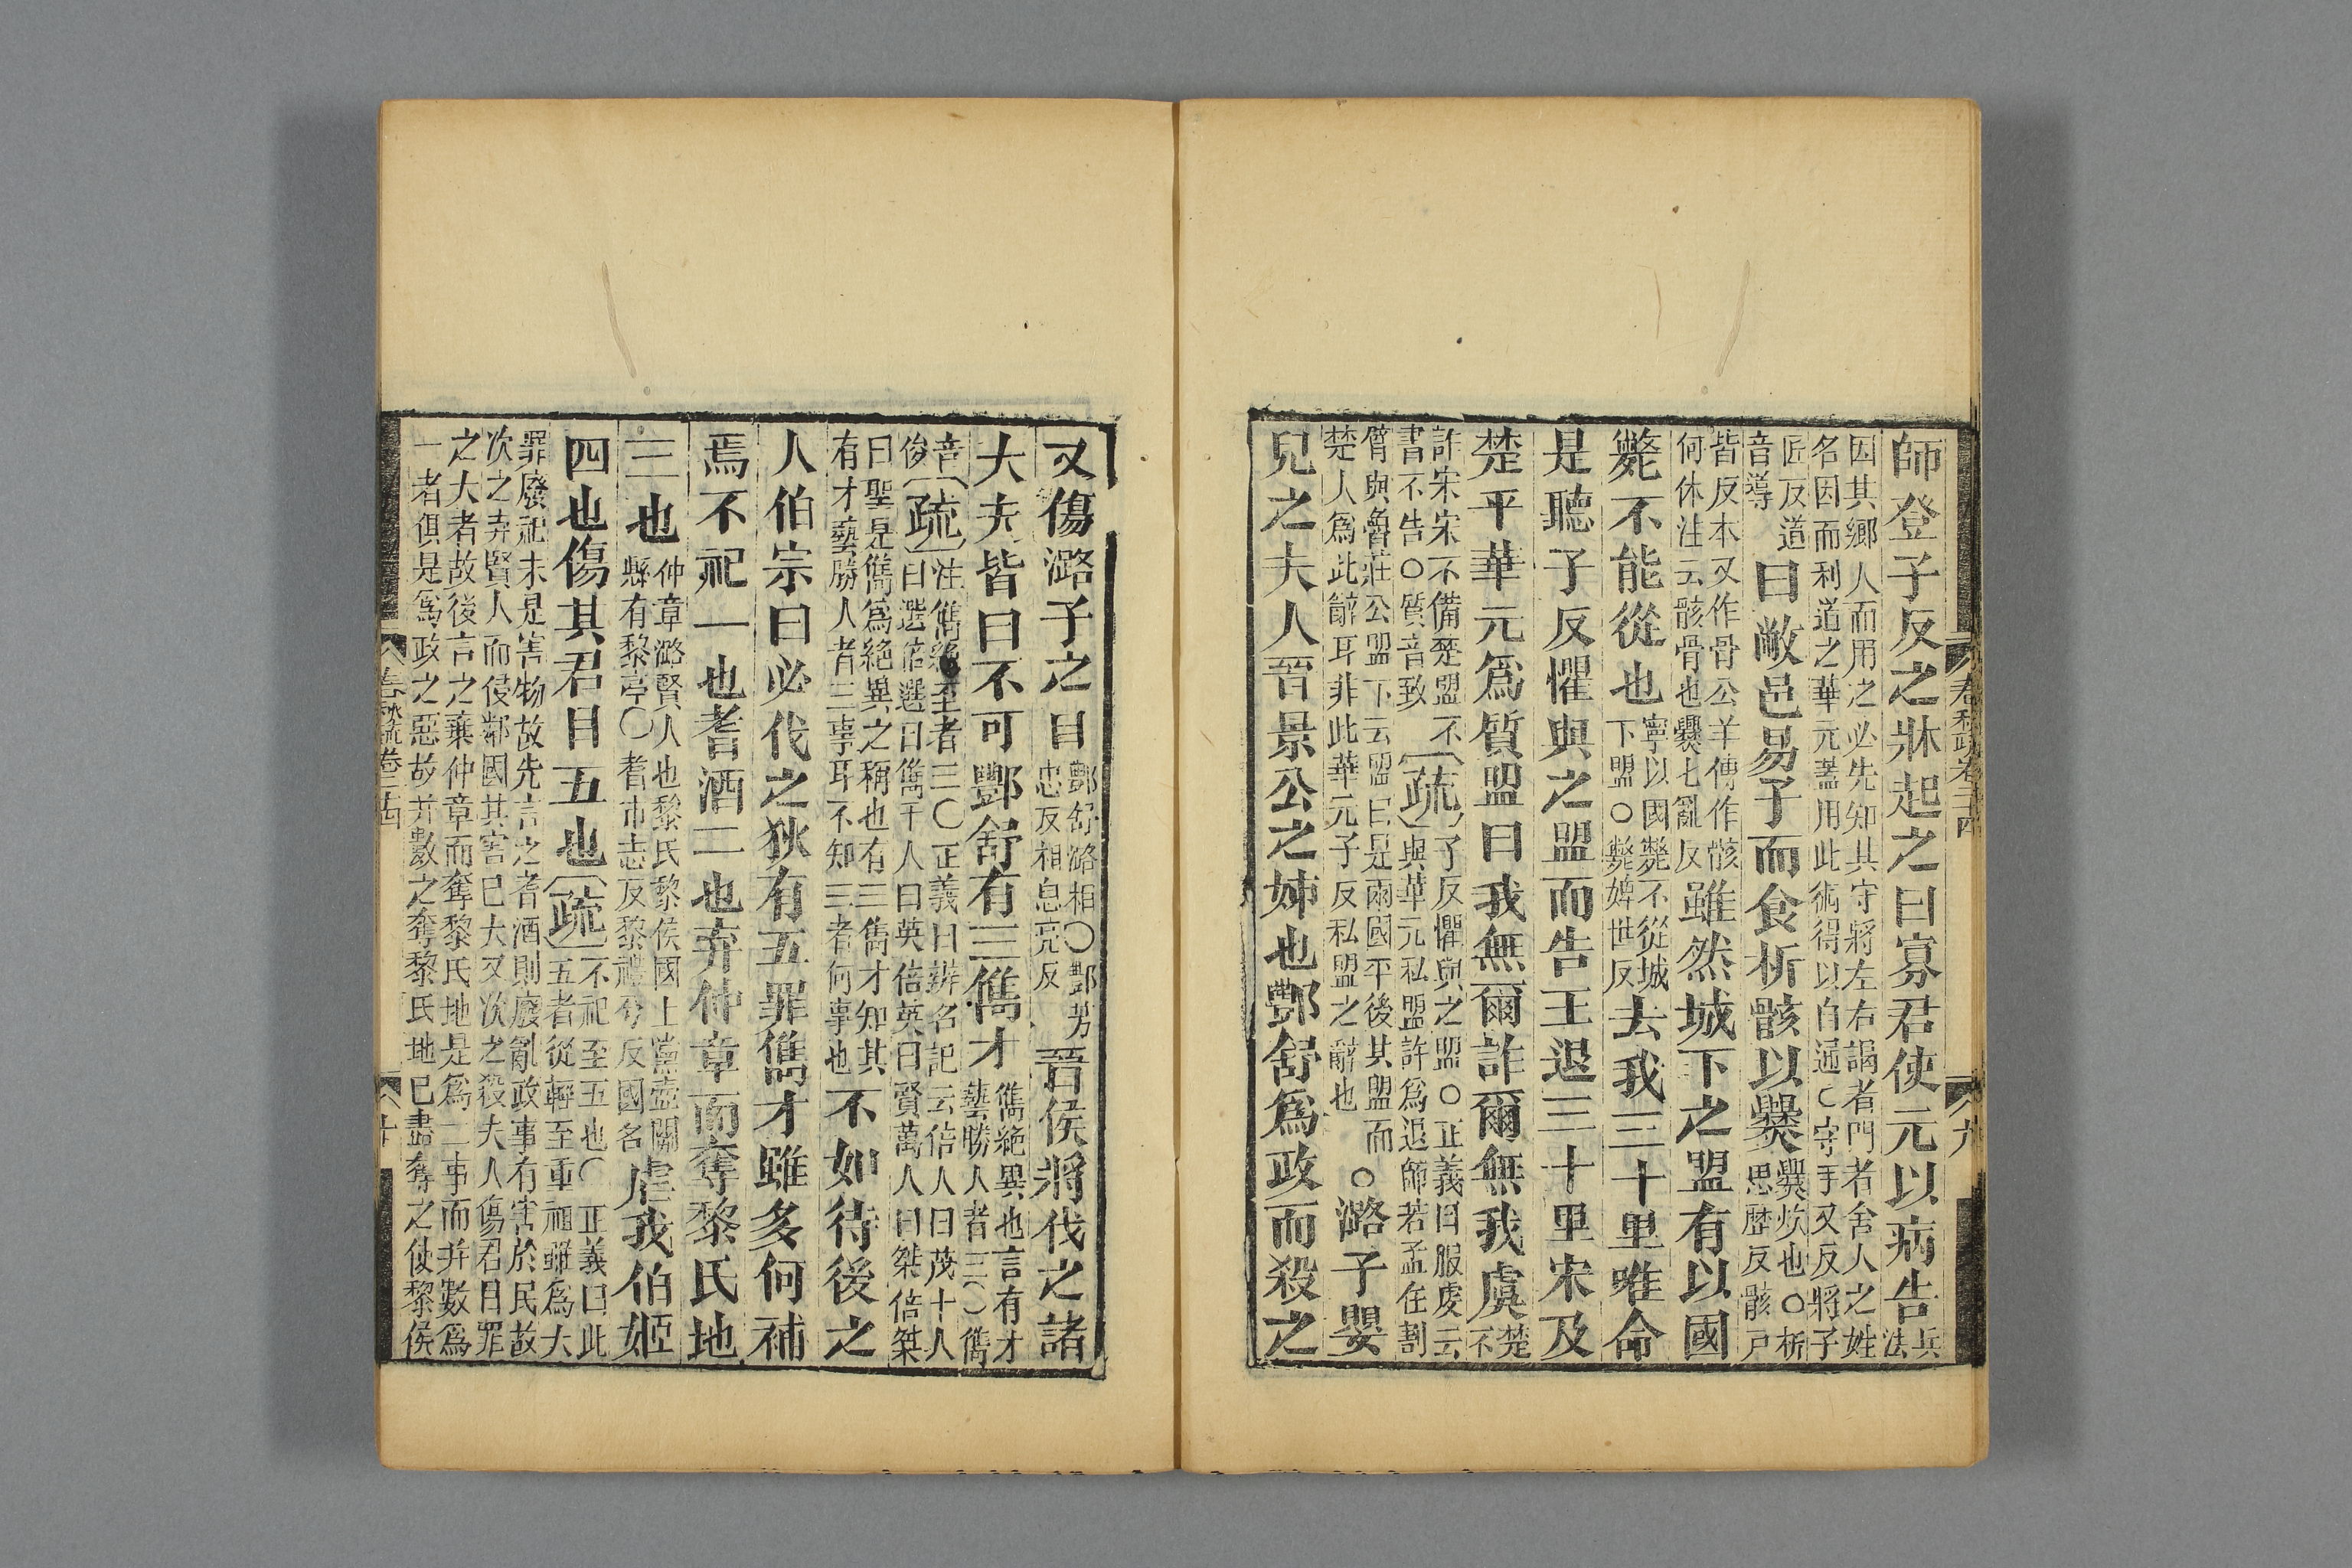 春秋疏卷二十四
九
師登子反之牀起之曰寡君使元以病告兵法
因其鄉人而用之必先知其守將左右謁者門者舍人之姓
名因而利道之華元蓋用此術得以自通○守手又反將子
匠反道音導曰敝邑易子而食析骸以爨爨炊也○析思歷反骸戸
皆反本又作骨公羊傳作骸何休注云骸骨也爨七亂反雖然城下之盟有以國
斃不能從也寧以國斃不從城下盟○斃婢世反去我三十里唯命
是聽子反懼與之盟而告王退三十里宋及
楚平華元爲質盟曰我無爾詐爾無我虞楚不
詐宋宋不備楚盟不書不告○質音致疏子反懼與之盟○正義曰服虔云與華元私盟許爲退師若孟任割
臂與魯莊公盟下云盟曰是兩國平後其盟而楚人爲此辭耳非此華元子反私盟之辭也○潞子嬰
兒之夫人晉景公之姊也酆舒爲政而殺之
又傷潞子之目酆舒潞相○酆芳忠反相息亮反晉侯將伐之諸
大夫皆曰不可酆舒有三儁才儁絕異也言有才藝勝人者三○儁
音俊疏注儁絕至者三○正義曰辨名記云倍人曰茂十人曰選倍選曰儁千人曰英倍英曰賢萬人曰桀倍桀
曰聖是儁爲絕異之稱也有三儁才知其有才藝勝人者三事耳不知三者何事也不如待後之
人伯宗曰必伐之狄有五罪儁才雖多何補
焉不祀一也耆酒二也弃仲章而奪黎氏地
三也仲章潞賢人也黎氏黎侯國上黨壺關縣有黎亭○耆市志反黎禮兮反國名虐我伯姬
四也傷其君目五也疏不祀至五也○正義曰此五者從輕至重祖雖爲大
罪廢祀未是害物故先言之耆酒則廢亂政事有害於民故
次之弃賢人而侵鄰國其害已大又次之殺夫人傷君目罪
之大者故後言之棄仲章而奪黎氏地是爲二事而并數爲
一者俱是爲政之惡故并數之奪黎氏地已盡奪之使黎侯
春秋疏卷二十四
十